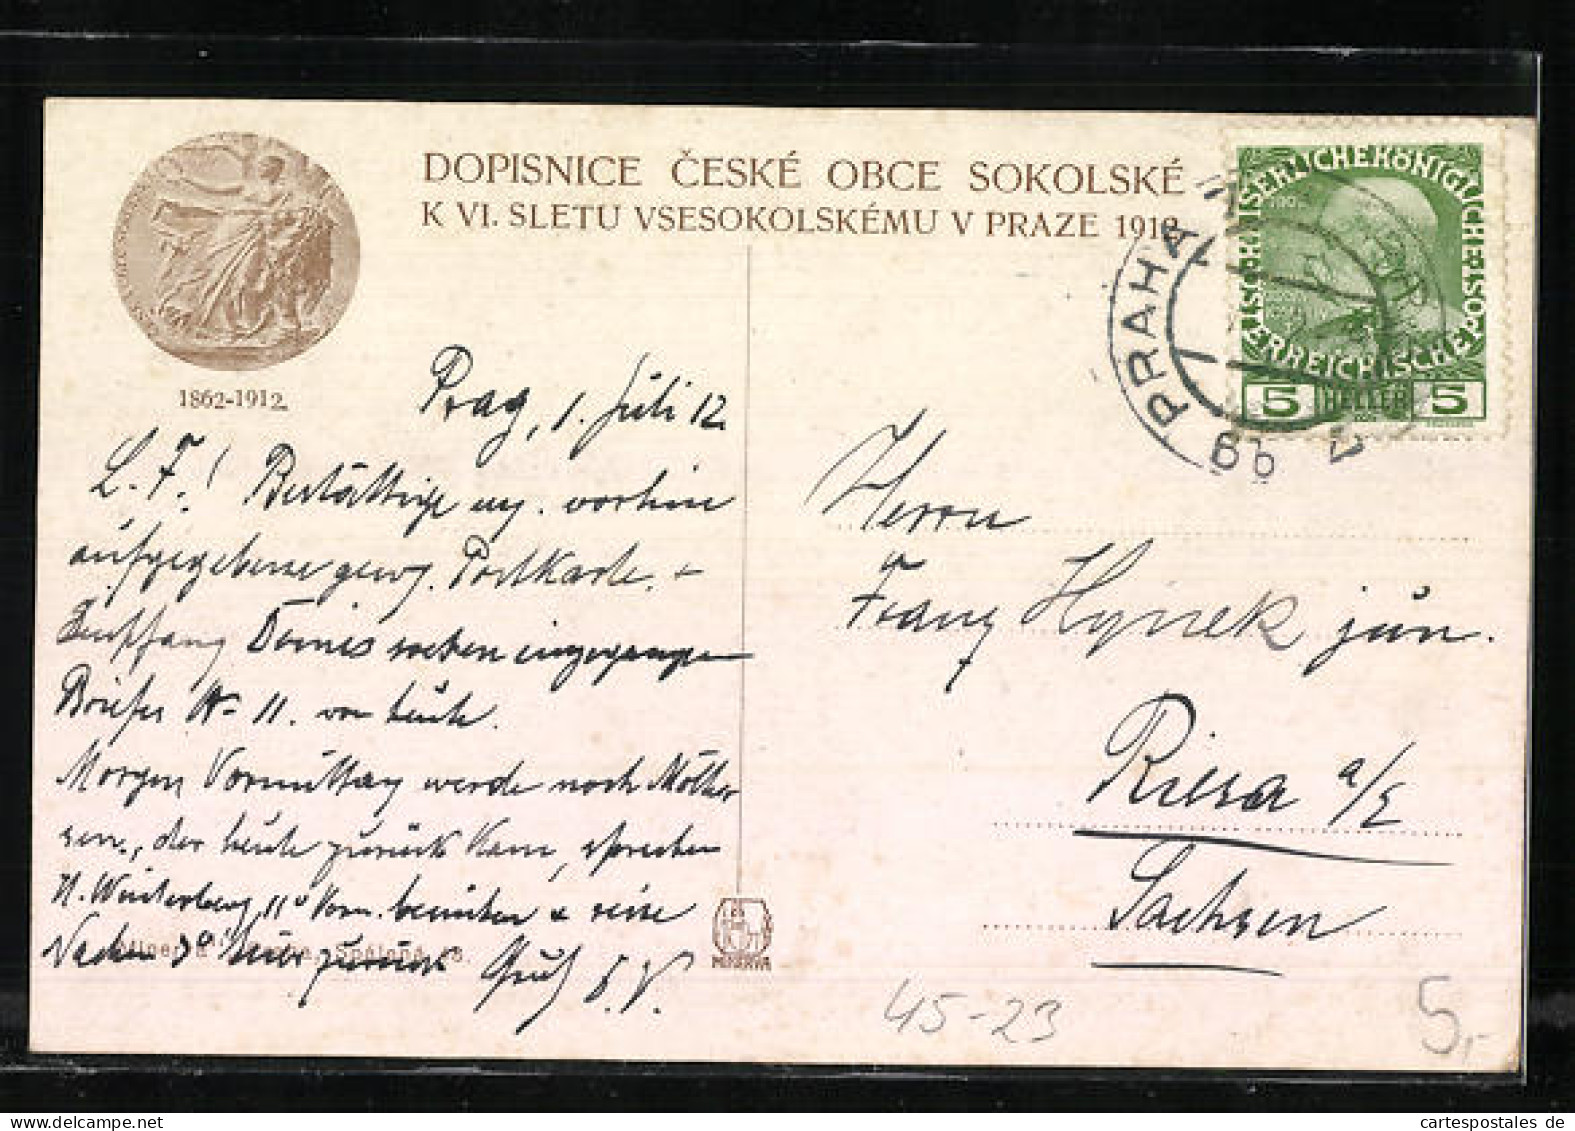 DOPISNICE ČESKÉ OBCE SOKOLSKÉ
K VI. SLETU VŠESOKOLSKÉMU V PRAZE 1912.
1862-1912.
KAISERLICHE KÖNIGLICHE
ÖSTERREICHISCHE POST
5 HELLER 5
PRAHA
Prag, 1. Juli 12.
L. F.! Bestättige vorhin
aufgegebene Postkarte. +
Empfang Deines soeben eingegangenen
Briefes Nr 11. von heute.
Morgen Vormittag werde noch Mölker
sen., der heute zurück kam, sprechen
H. Winterberg 11° Vorm. besuchen + reise
Nachm 3° hier zurück Gruß D. V.
Herrn
Franz Hynek jun.
Riesa a/E
Sachsen
MINERVA
45-23
5,-
cartespostales de